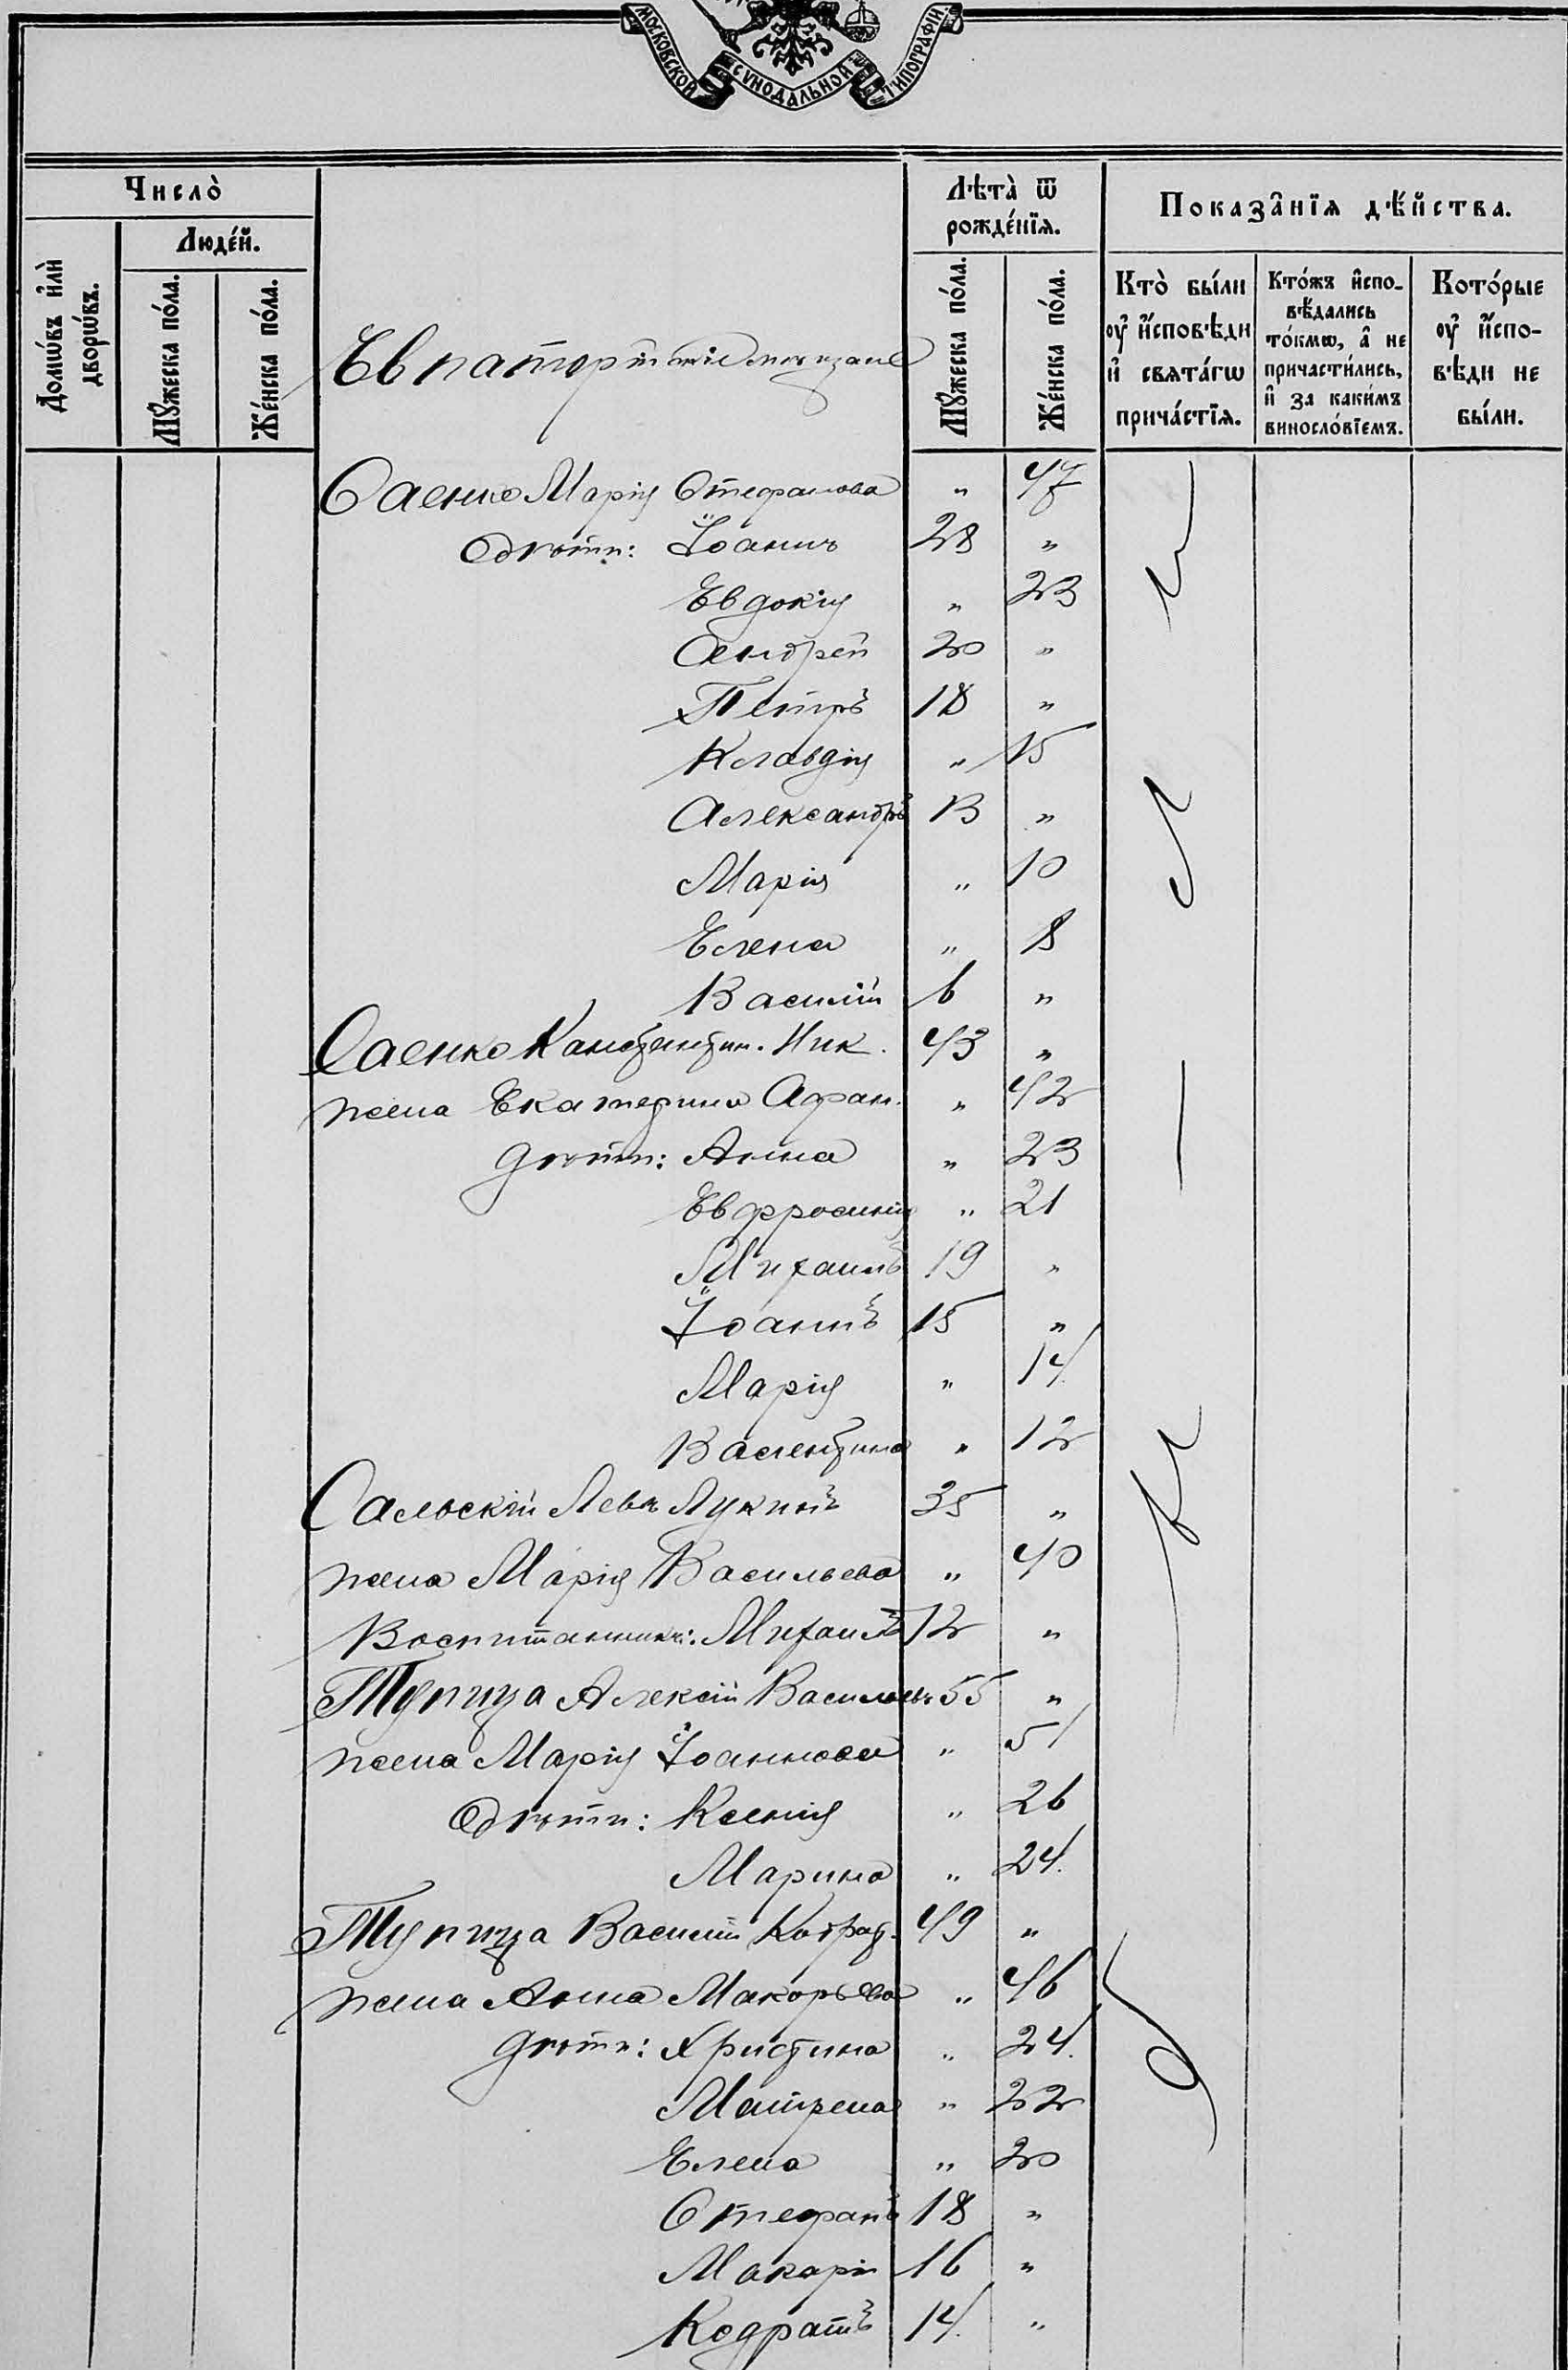 МОСКОВСКОЙ СѴНОДАЛЬНОЙ ТИПОГРАФІИ.
Число̀
Люде́й.
Домѡ́въ и҆лѝ дворѡ́въ.
Мꙋ́жеска по́ла.
Же́нска по́ла.
Лѣта̀ ѿ рожде́нїѧ.
Мꙋ́жеска по́ла.
Же́нска по́ла.
Показа̑нїѧ дѣ́йства.
Кто̀ бы́ли оу҆ и҆сповѣди и҆ свѧта́гѡ прича́стїѧ.
Кто́жъ и҆спо-вѣ́дались то́кмѡ, а҆ не причасти́лись, и҆ за каки́мъ винословїемъ.
Кото́рые оу҆ и҆спо-вѣди не бы́ли.
Евпаторійскіе мѣщане
Саенко Марія Стефанова " 47
Дѣти: Іоаннъ 28 "
Евдокія " 23
Андрей 20 "
Петръ 18 "
Клавдія " 15
Александръ 13 "
Марія " 10
Елена " 8
Василій 6 "
Саенко Константин. Ник. 43 "
жена Екатерина Афан. " 42
дѣти: Анна " 23
Евфросинія " 21
Михаилъ 19 "
Іоаннъ 15 "
Марія " 14
Валентина " 12
Сальскій Левъ Лукинъ 35 "
жена Марія Васильева " 40
Воспитанник: Михаилъ 12 "
Тупица Алексій Васильев. 55 "
жена Марія Іоаннова " 51
Дѣти: Ксенія " 26
Марина " 24.
Тупица Василій Кодрат. 49 "
жена Анна Макарьева " 46
дѣти: Христина " 24.
Матрена " 22
Елена " 20
Стефанъ 18 "
Макарій 16 "
Кодратъ 14. "